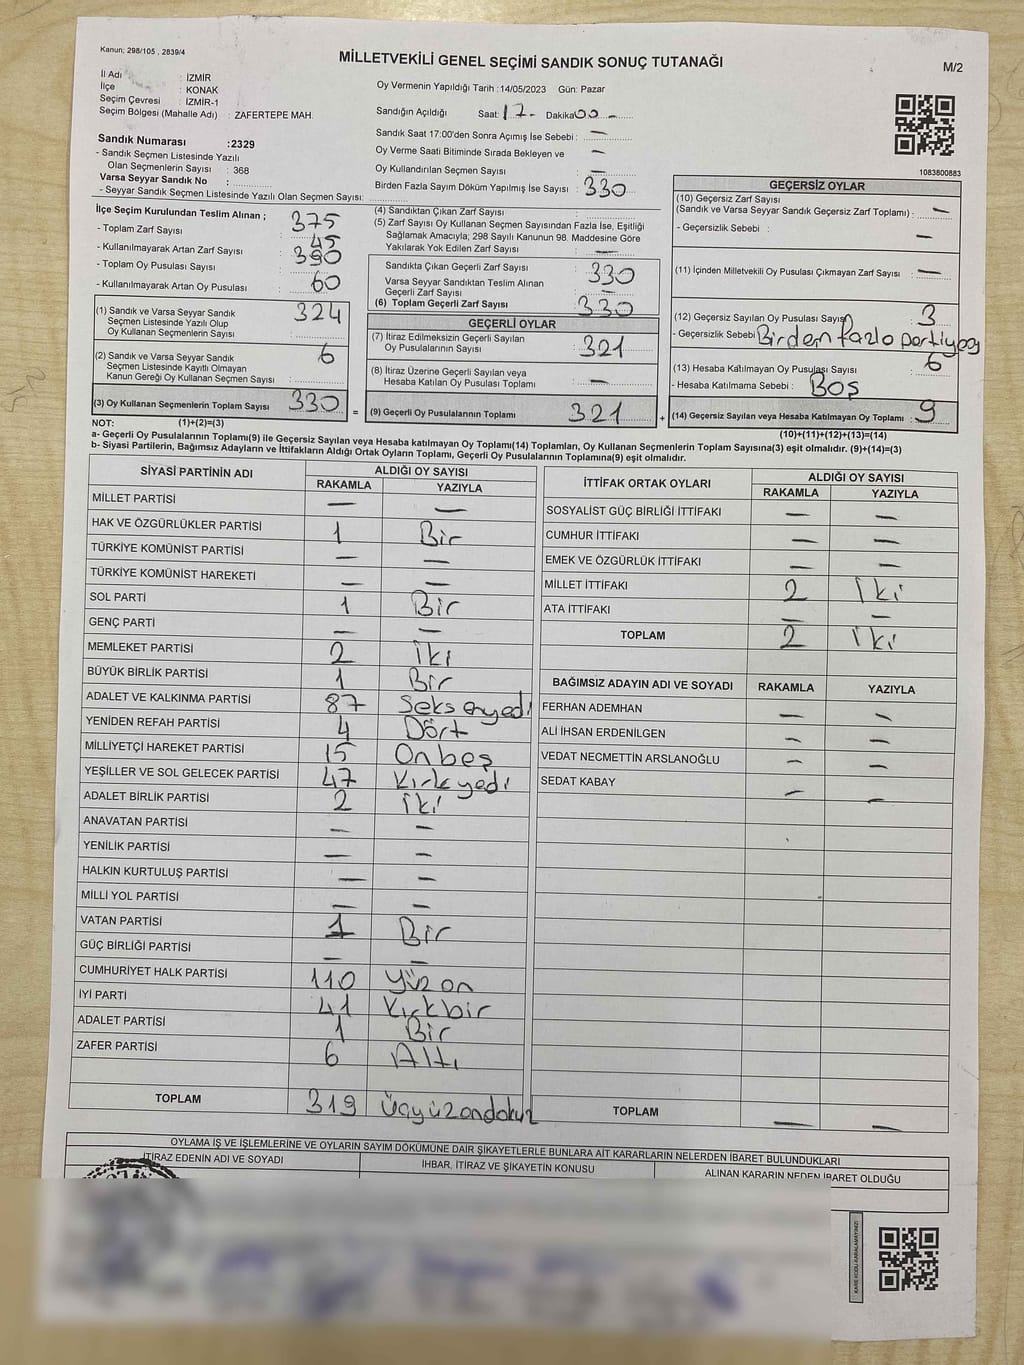 Kanun; 298/105 , 2839/4
MİLLETVEKİLİ GENEL SEÇİMİ SANDIK SONUÇ TUTANAĞI
M/2
İl Adı : İZMİR
İlçe : KONAK
Seçim Çevresi : İZMİR-1
Seçim Bölgesi (Mahalle Adı) : ZAFERTEPE MAH.
Sandık Numarası :2329
- Sandık Seçmen Listesinde Yazılı
Olan Seçmenlerin Sayısı : 368
Varsa Seyyar Sandık No :
- Seyyar Sandık Seçmen Listesinde Yazılı Olan Seçmen Sayısı:
Oy Vermenin Yapıldığı Tarih :14/05/2023 Gün: Pazar
Sandığın Açıldığı Saat: 17 Dakika 00
Sandık Saat 17:00'den Sonra Açımış İse Sebebi : —
Oy Verme Saati Bitiminde Sırada Bekleyen ve
Oy Kullandırılan Seçmen Sayısı : —
Birden Fazla Sayım Döküm Yapılmış İse Sayısı : 330
1083800883
İlçe Seçim Kurulundan Teslim Alınan ;
- Toplam Zarf Sayısı : 375
- Kullanılmayarak Artan Zarf Sayısı : 45
- Toplam Oy Pusulası Sayısı : 390
- Kullanılmayarak Artan Oy Pusulası : 60
(1) Sandık ve Varsa Seyyar Sandık
Seçmen Listesinde Yazılı Olup
Oy Kullanan Seçmenlerin Sayısı : 324
(2) Sandık ve Varsa Seyyar Sandık
Seçmen Listesinde Kayıtlı Olmayan
Kanun Gereği Oy Kullanan Seçmen Sayısı : 6
(3) Oy Kullanan Seçmenlerin Toplam Sayısı : 330
(4) Sandıktan Çıkan Zarf Sayısı :
(5) Zarf Sayısı Oy Kullanan Seçmen Sayısından Fazla İse, Eşitliği
Sağlamak Amacıyla; 298 Sayılı Kanunun 98. Maddesine Göre
Yakılarak Yok Edilen Zarf Sayısı : —
Sandıkta Çıkan Geçerli Zarf Sayısı : 330
Varsa Seyyar Sandıktan Teslim Alınan
Geçerli Zarf Sayısı : —
(6) Toplam Geçerli Zarf Sayısı : 330
GEÇERLİ OYLAR
(7) İtiraz Edilmeksizin Geçerli Sayılan
Oy Pusulalarının Sayısı : 321
(8) İtiraz Üzerine Geçerli Sayılan veya
Hesaba Katılan Oy Pusulası Toplamı : —
= (9) Geçerli Oy Pusulalarının Toplamı : 321 +
GEÇERSİZ OYLAR
(10) Geçersiz Zarf Sayısı
(Sandık ve Varsa Seyyar Sandık Geçersiz Zarf Toplamı) : —
- Geçersizlik Sebebi : —
(11) İçinden Milletvekili Oy Pusulası Çıkmayan Zarf Sayısı : —
(12) Geçersiz Sayılan Oy Pusulası Sayısı : 3
- Geçersizlik Sebebi : Birden fazla partiye oy
(13) Hesaba Katılmayan Oy Pusulası Sayısı : 6
- Hesaba Katılmama Sebebi : Boş
(14) Geçersiz Sayılan veya Hesaba Katılmayan Oy Toplamı : 9
NOT: (1)+(2)=(3)
(10)+(11)+(12)+(13)=(14)
a- Geçerli Oy Pusulalarının Toplamı(9) ile Geçersiz Sayılan veya Hesaba katılmayan Oy Toplamı(14) Toplamları, Oy Kullanan Seçmenlerin Toplam Sayısına(3) eşit olmalıdır. (9)+(14)=(3)
b- Siyasi Partilerin, Bağımsız Adayların ve İttifakların Aldığı Ortak Oyların Toplamı, Geçerli Oy Pusulalarının Toplamına(9) eşit olmalıdır.
SİYASİ PARTİNİN ADI ALDIĞI OY SAYISI
RAKAMLA YAZIYLA
MİLLET PARTİSİ — —
HAK VE ÖZGÜRLÜKLER PARTİSİ 1 Bir
TÜRKİYE KOMÜNİST PARTİSİ — —
TÜRKİYE KOMÜNİST HAREKETİ — —
SOL PARTİ 1 Bir
GENÇ PARTİ — —
MEMLEKET PARTİSİ 2 İki
BÜYÜK BİRLİK PARTİSİ 1 Bir
ADALET VE KALKINMA PARTİSİ 87 Seksenyedi
YENİDEN REFAH PARTİSİ 4 Dört
MİLLİYETÇİ HAREKET PARTİSİ 15 Onbeş
YEŞİLLER VE SOL GELECEK PARTİSİ 47 Kırkyedi
ADALET BİRLİK PARTİSİ 2 iki
ANAVATAN PARTİSİ — —
YENİLİK PARTİSİ — —
HALKIN KURTULUŞ PARTİSİ — —
MİLLİ YOL PARTİSİ — —
VATAN PARTİSİ 1 Bir
GÜÇ BİRLİĞİ PARTİSİ — —
CUMHURİYET HALK PARTİSİ 110 Yüzon
İYİ PARTİ 41 Kırkbir
ADALET PARTİSİ 1 Bir
ZAFER PARTİSİ 6 Altı
TOPLAM 319 Üçyüzondokuz
İTTİFAK ORTAK OYLARI ALDIĞI OY SAYISI
RAKAMLA YAZIYLA
SOSYALİST GÜÇ BİRLİĞİ İTTİFAKI — —
CUMHUR İTTİFAKI — —
EMEK VE ÖZGÜRLÜK İTTİFAKI — —
MİLLET İTTİFAKI 2 iki
ATA İTTİFAKI — —
TOPLAM 2 iki
BAĞIMSIZ ADAYIN ADI VE SOYADI RAKAMLA YAZIYLA
FERHAN ADEMHAN — —
ALİ İHSAN ERDENİLGEN — —
VEDAT NECMETTİN ARSLANOĞLU — —
SEDAT KABAY — —
TOPLAM — —
OYLAMA İŞ VE İŞLEMLERİNE VE OYLARIN SAYIM DÖKÜMÜNE DAİR ŞİKAYETLERLE BUNLARA AİT KARARLARIN NELERDEN İBARET BULUNDUKLARI
İTİRAZ EDENİN ADI VE SOYADI İHBAR, İTİRAZ VE ŞİKAYETİN KONUSU ALINAN KARARIN NEDEN İBARET OLDUĞU
KARE KODU KARALAMAYINIZ!